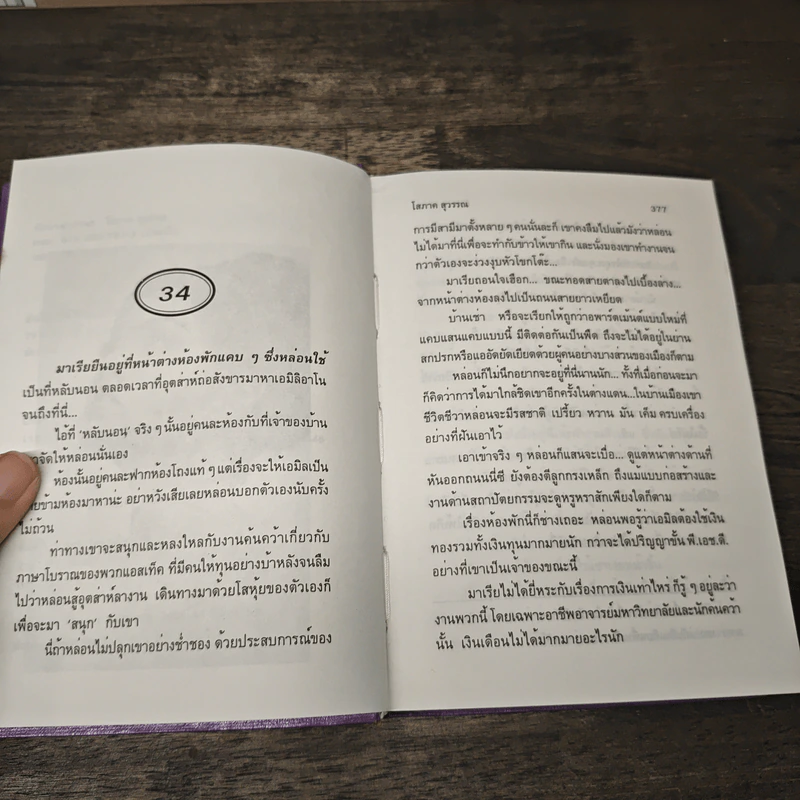 34
มาเรียยืนอยู่ที่หน้าต่างห้องพักแคบ ๆ ซึ่งหล่อนใช้
เป็นที่หลับนอน ตลอดเวลาที่อุตส่าห์ถ่อสังขารมาหาเอมิลิอาโน
จนถึงที่นี่...
ไอ้ที่ 'หลับนอน' จริง ๆ นั้นอยู่คนละห้องกับที่เจ้าของบ้าน
จัดให้หล่อนนั่นเอง
ห้องนั้นอยู่คนละฟากห้องโถงแท้ ๆ แต่เรื่องจะให้เอมิลเป็น
ข้ามห้องมาหาน่ะ อย่าหวังเสียเลยหล่อนบอกตัวเองนับครั้ง
ไม่ถ้วน
ท่าทางเขาจะสนุกและหลงใหลกับงานค้นคว้าเกี่ยวกับ
ภาษาโบราณของพวกแอสเท็ค ที่มีคนให้ทุนอย่างบ้าหลังจนลืม
ไปว่าหล่อนสู้อุตส่าห์ลางาน เดินทางมาด้วยโสหุ้ยของตัวเองก็
เพื่อจะมา 'สนุก' กับเขา
นี่ถ้าหล่อนไม่ปลุกเขาอย่างช่ำชอง ด้วยประสบการณ์ของ
โสภาค สุวรรณ 377
การมีสามีมาตั้งหลาย ๆ คนนั่นละก็ เขาคงลืมไปแล้วมังว่าหล่อน
ไม่ได้มาที่นี่เพื่อจะทำกับข้าวให้เขากิน และนั่งมองเขาทำงานจน
กว่าตัวเองจะง่วงงุบหัวโขกโต๊ะ...
มาเรียถอนใจเฮือก... ขณะทอดสายตาลงไปเบื้องล่าง...
จากหน้าต่างห้องลงไปเป็นถนนสายยาวเหยียด
บ้านเช่า หรือจะเรียกให้ถูกว่าอพาร์ตเม้นต์แบบใหม่ที่
แคบแสนแคบแบบนี้ มีติดต่อกันเป็นพืด ถึงจะไม่ได้อยู่ในย่าน
สกปรกหรือแออัดยัดเยียดด้วยผู้คนอย่างบางส่วนของเมืองก็ตาม
หล่อนก็ไม่นึกอยากจะอยู่ที่นี่นานนัก... ทั้งที่เมื่อก่อนจะมา
ก็คิดว่าการได้มาใกล้ชิดเขาอีกครั้งในต่างแดน...ในบ้านเมืองเขา
ชีวิตชีวาหล่อนจะมีรสชาติ เปรี้ยว หวาน มัน เค็ม ครบเครื่อง
อย่างที่ฝันเอาไว้
เอาเข้าจริง ๆ หล่อนก็แสนจะเบื่อ... ดูแต่หน้าต่างด้านที่
หันออกถนนนี่ซี ยังต้องตีลูกกรงเหล็ก ถึงแม้แบบก่อสร้างและ
งานด้านสถาปัตยกรรมจะดูหรูหราสักเพียงใดก็ตาม
เรื่องห้องพักนี้ก็ช่างเถอะ หล่อนพอรู้ว่าเอมิลต้องใช้เงิน
ทองรวมทั้งเงินทุนมากมายนัก กว่าจะได้ปริญญาขั้น พี.เอช.ดี.
อย่างที่เขาเป็นเจ้าของขณะนี้
มาเรียไม่ได้ยี่หระกับเรื่องการเงินเท่าไหร่ ก็รู้ ๆ อยู่ละว่า
งานพวกนี้ โดยเฉพาะอาชีพอาจารย์มหาวิทยาลัยและนักค้นคว้า
นั้น เงินเดือนไม่ได้มากมายอะไรนัก